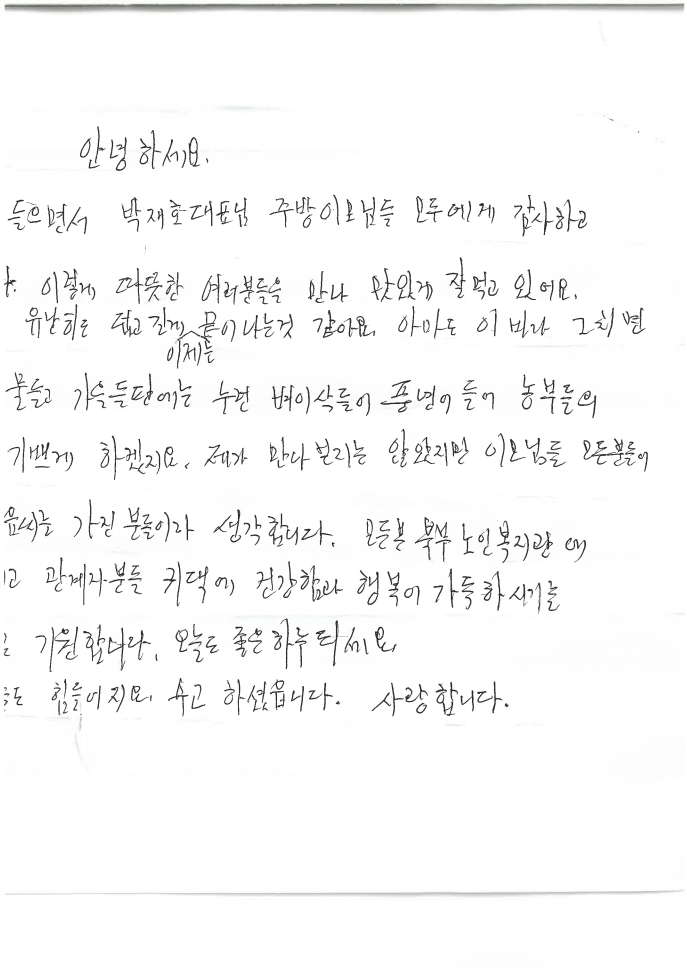 안녕하세요.
들으면서 박재호대표님 주방이모님들 모두에게 감사하고
이렇게 따뜻한 여러분들을 만나 맛있게 잘먹고 있어요.
유난히도 덥고 길게 끝이나는것 같아요. 아마도 이 비가 그치면
이제는
물들고 가을들판에는 누런 벼이삭들이 풍년이 들어 농부들의
기쁘게 하겠지요. 제가 만나보지는 않았지만 이모님들 모든분들이
가진 분들이라 생각합니다. 모든분 북부노인복지관
고 관계자분들 귀댁에 건강함과 행복이 가득하시기를
기원합니다. 오늘도 좋은하루 되세요.
힘들어지요. 수고 하셨읍니다. 사랑합니다.